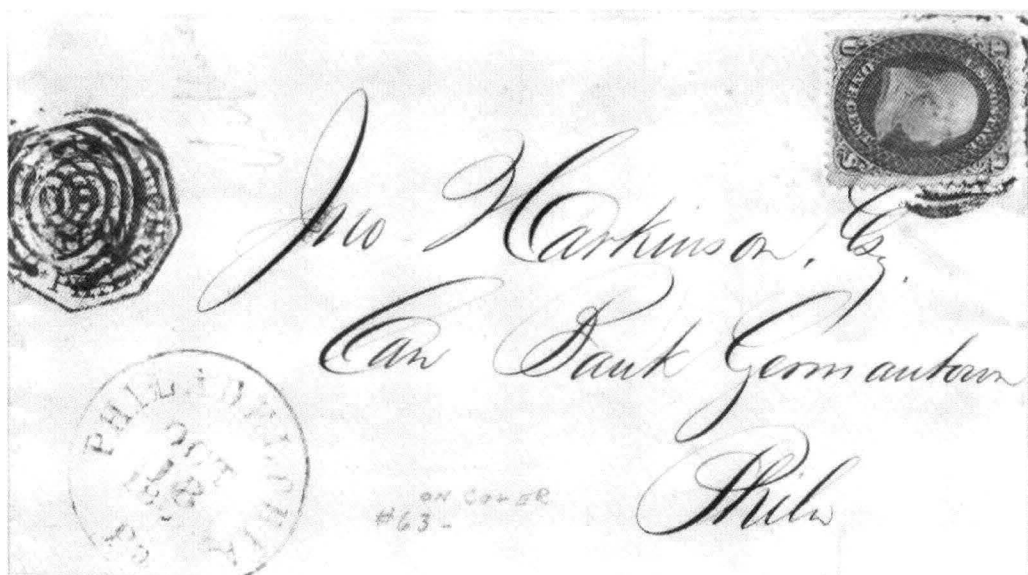 U.S. POSTAGE
Jno Harkinson, Esq.
Care Bank Germantown
Phila
PHILADELPHIA
OCT
18
Pa
ON COVER
#63-